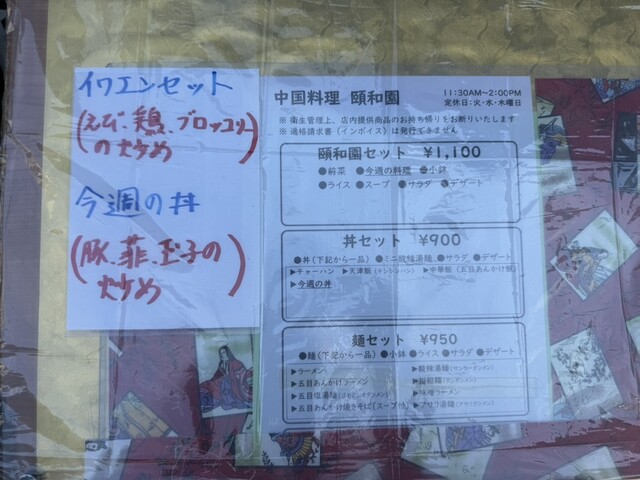 イワエンセット
(えび、鶏、ブロッコリー
の炒め)
今週の丼
(豚、韮、玉子の
炒め)
中国料理 頤和園
11:30AM～2:00PM
定休日:火・水・木曜日
※ 衛生管理上、店内提供商品のお持ち帰りをお断りいたします
※ 適格請求書(インボイス)は発行できません
頤和園セット ¥1,100
●前菜 ●今週の料理 ●小鉢
●ライス ●スープ ●サラダ ●デザート
丼セット ¥900
●丼(下記から一品) ●ミニ酸辣湯麺 ●サラダ ●デザート
▶チャーハン ▶天津飯(テンシンハン) ▶中華飯(五目あんかけ飯)
▶今週の丼
麺セット ¥950
●麺(下記から一品) ●小鉢 ●ライス ●サラダ ●デザート
▶ラーメン ▶酸辣湯麺(サンラータンメン)
▶五目あんかけラーメン
▶五目塩湯麺 ▶味噌ラーメン
▶五目あんかけ焼きそば(スープ付) ▶アサリ湯麺(アサリタンメン)